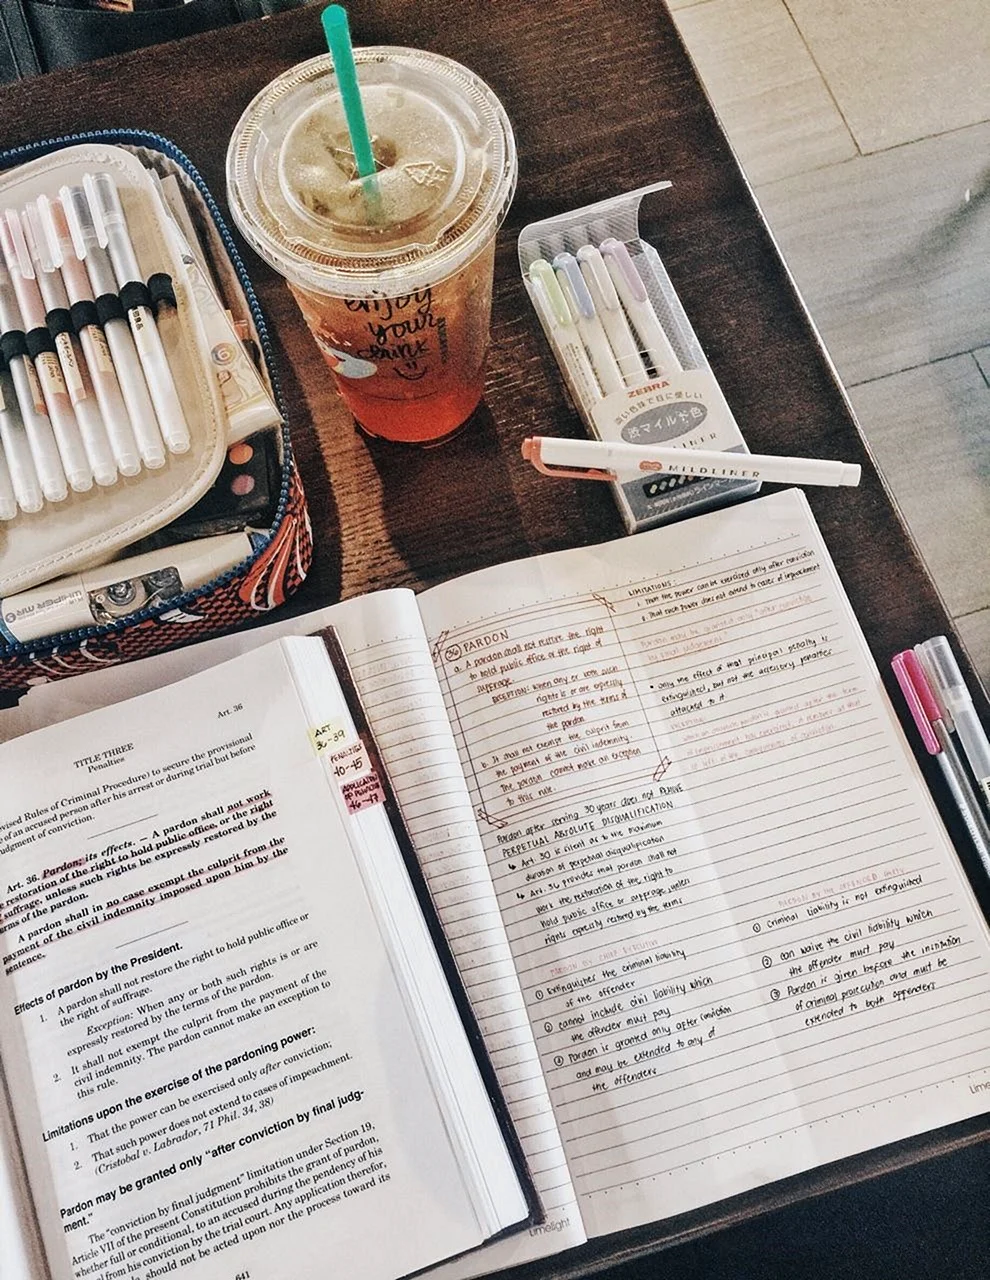 enjoy
your
drink
ZEBRA
渋マイルド色
MILDLINER
WHIPER MR
Art. 36
TITLE THREE
Penalties
vised Rules of Criminal Procedure) to secure the provisional
of an accused person after his arrest or during trial but before
judgment of conviction.
Art. 36. Pardon; its effects. — A pardon shall not work
restoration of the right to hold public office, or the right
suffrage, unless such rights be expressly restored by the
terms of the pardon.
A pardon shall in no case exempt the culprit from the
payment of the civil indemnity imposed upon him by the
sentence.
Effects of pardon by the President.
1. A pardon shall not restore the right to hold public office or
the right of suffrage.
Exception: When any or both such rights is or are
expressly restored by the terms of the pardon.
2. It shall not exempt the culprit from the payment of the
civil indemnity. The pardon cannot make an exception to
this rule.
Limitations upon the exercise of the pardoning power:
1. That the power can be exercised only after conviction;
2. That such power does not extend to cases of impeachment.
(Cristobal v. Labrador, 71 Phil. 34, 38)
Pardon may be granted only "after conviction by final judg-
ment."
The "conviction by final judgment" limitation under Section 19,
Article VII of the present Constitution prohibits the grant of pardon,
whether full or conditional, to an accused during the pendency of his
from his conviction by the trial court. Any application therefor,
should not be acted upon nor the process toward its
641
ART
36-39
PENALTIES
40-45
APPLICATION
OF PENALTIES
46-47
36 PARDON
a. A pardon shall not restore the right
to hold public office or the right of
suffrage
EXCEPTION: When any or both such
rights is or are expressly
restored by the terms of
the pardon
b. It shall not exempt the culprit from
the payment of the civil indemnity.
The pardon cannot make an exception
to this rule.
Pardon after serving 30 years does not REMOVE
PERPETUAL ABSOLUTE DISQUALIFICATION
↳ Art 30 is silent as to the maximum
duration of perpetual disqualification
↳ Art. 36 provides that pardon shall not
work the restoration of the right to
hold public office or suffrage, unless
rights expressly restored by the terms
PARDON BY CHIEF EXECUTIVE
① Extinguishes the criminal liability
of the offender
② cannot include civil liability which
the offender must pay
③ Pardon is granted only after conviction
and may be extended to any of
the offenders
LIMITATIONS:
1. That the power can be exercised only after conviction
2. That such power does not extend to cases of impeachment
Pardon may be granted only "after conviction
by final judgment"
• Only the effect of that principal penalty is
extinguished, but not the accessory penalties
attached to it
PARDON BY THE OFFENDED PARTY
① Criminal liability is not extinguished
② can waive the civil liability which
the offender must pay
③ Pardon is given before the institution
of criminal prosecution and must be
extended to both offenders
Limelight